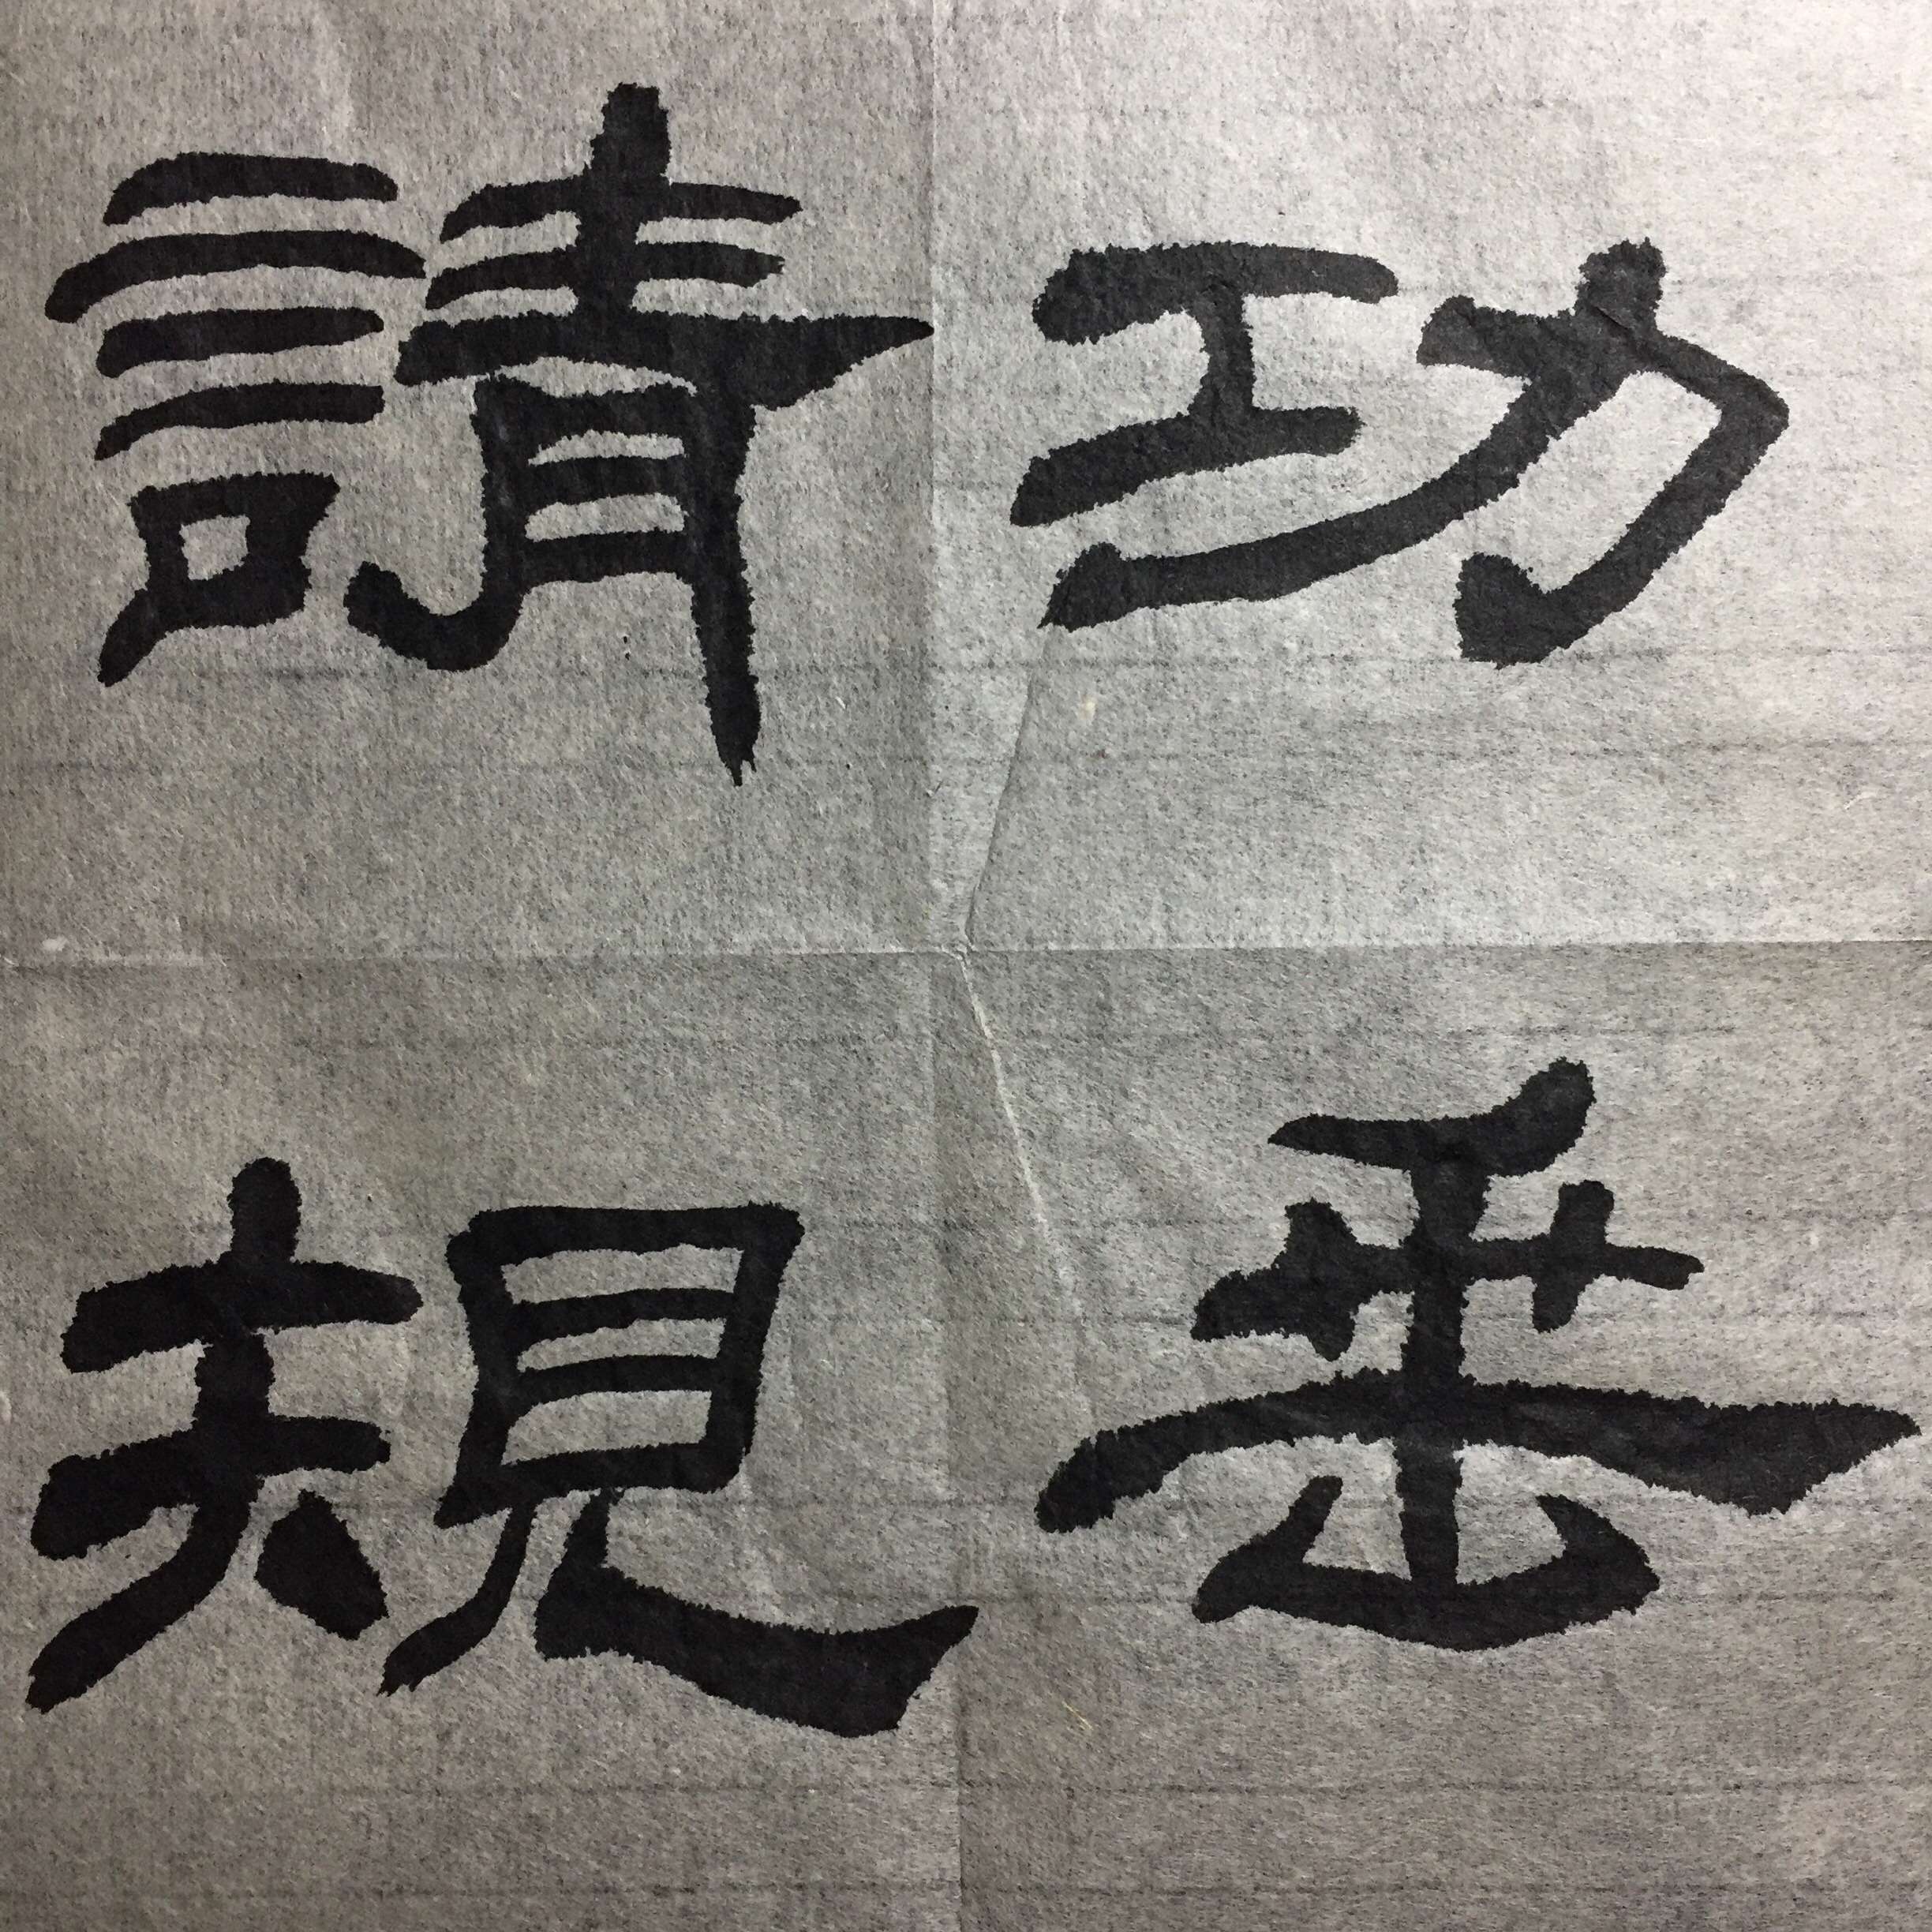 功垂
請規